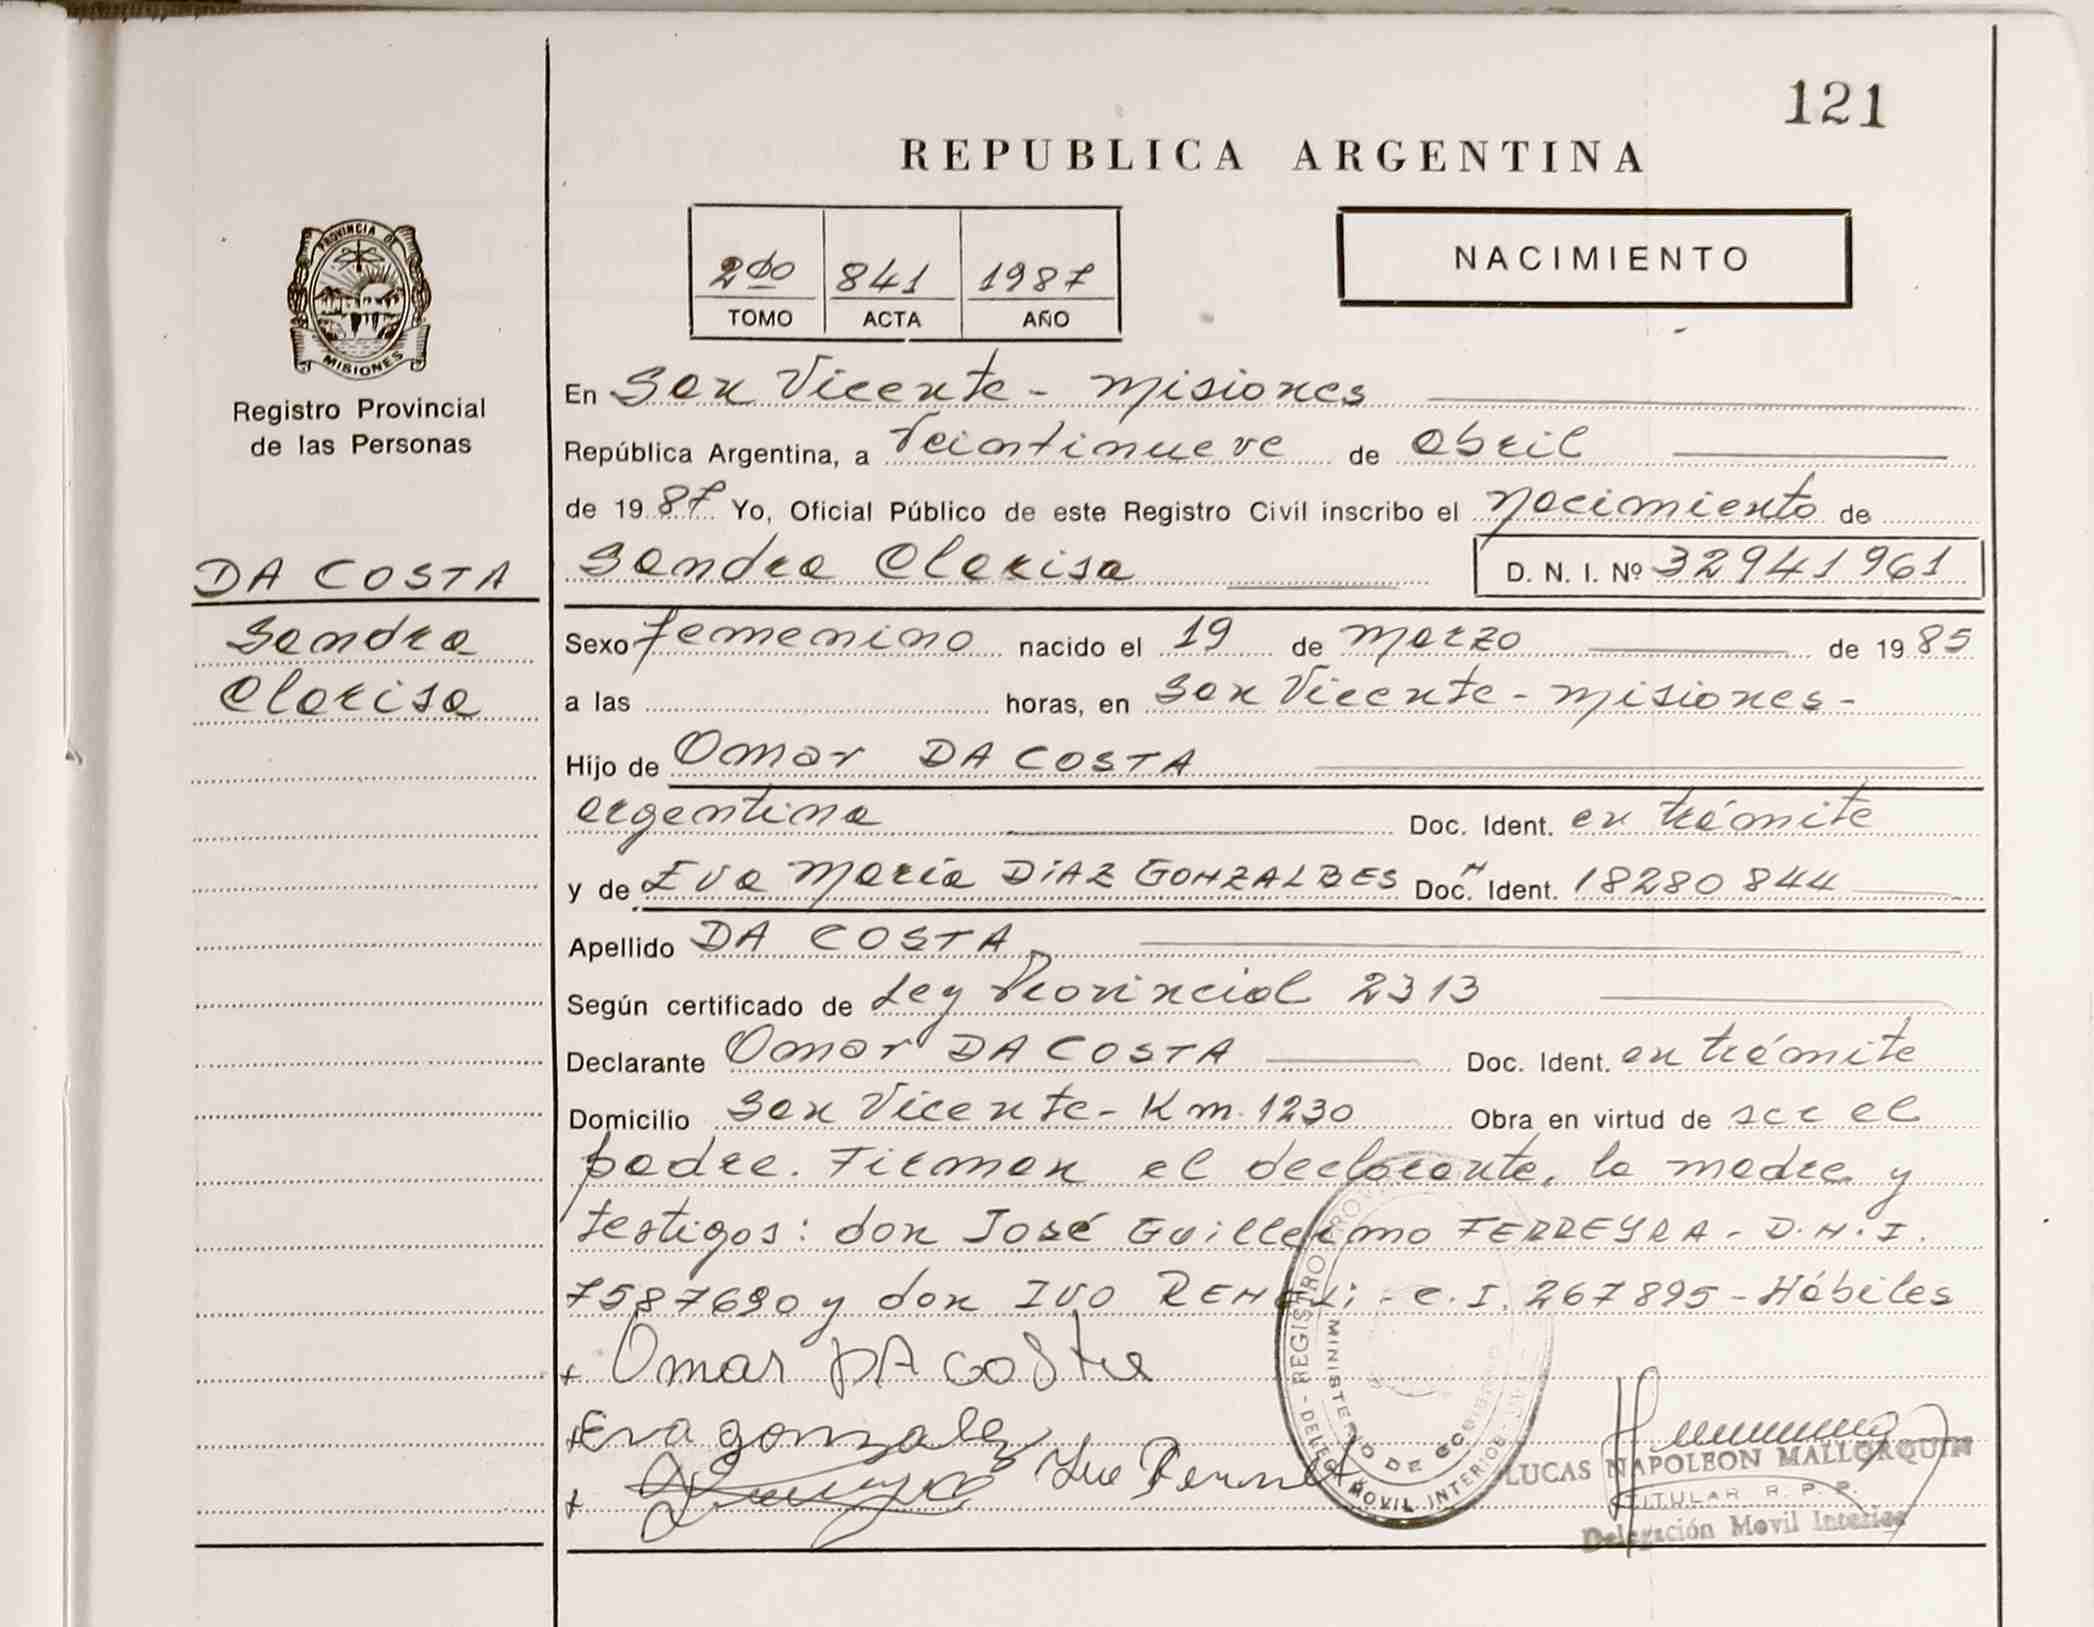 121
REPUBLICA ARGENTINA
2do 841 1987
TOMO ACTA AÑO
NACIMIENTO
PROVINCIA DE
MISIONES
Registro Provincial
de las Personas
DA COSTA
Sandra
Clarisa
En San Vicente - Misiones
República Argentina, a Veintinueve de abril
de 1987 Yo, Oficial Público de este Registro Civil inscribo el nacimiento de
Sandra Clarisa D. N. I. Nº 32941961
Sexo femenino nacido el 19 de marzo de 1985
a las horas, en San Vicente - Misiones -
Hijo de Omar DA COSTA
argentina Doc. Ident. en trámite
y de Eva María DIAZ GONZALBES Doc. Ident. 18280844
Apellido DA COSTA
Según certificado de Ley Provincial 2313
Declarante Omar DA COSTA Doc. Ident. en trámite
Domicilio San Vicente - Km. 1230 Obra en virtud de ser el
padre. Firman el declarante, la madre y
testigos: don José Guillermo FERREYRA - D.N.I.
7587690 y don IVO - C.I. 267895 - Hábiles
+ Omar DA COSta
+ Eva gonzalez
+
REGISTRO
MINISTERIO DE GOBIERNO
DELEG. MOVIL INTERIOR
LUCAS NAPOLEON MALLORQUIN
TITULAR R. P. P.
Delegación Movil Interior